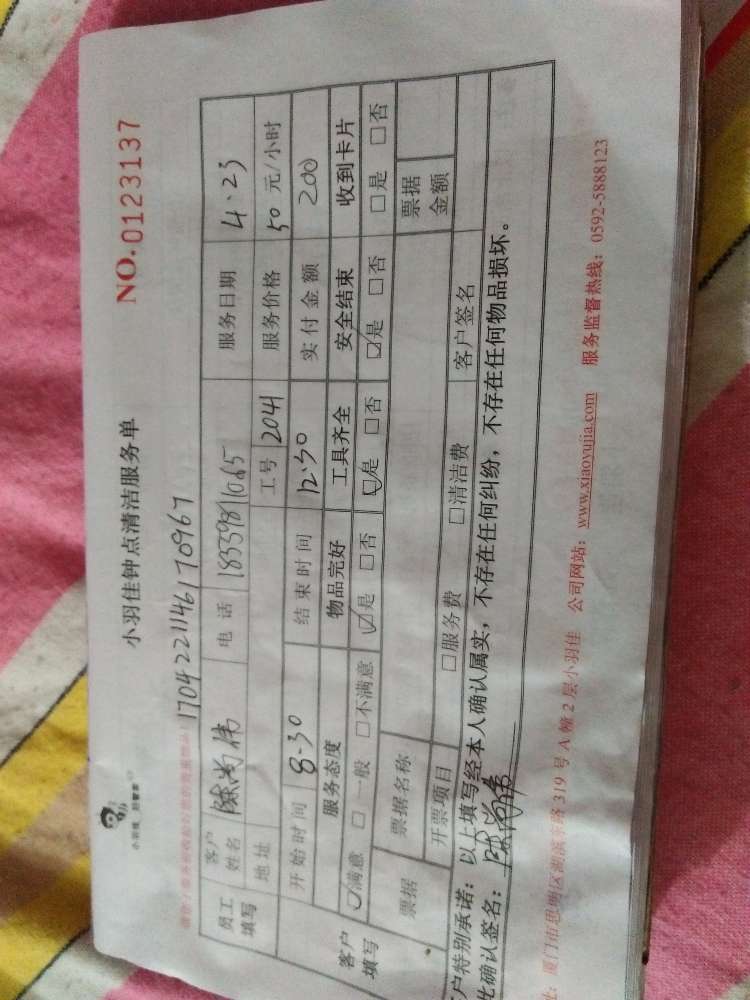 小羽佳 好管家
小羽佳钟点清洁服务单
NO.0123137
17042211461 70967
员工填写
客户姓名 陈尚伟 电话 18359811065 服务日期 4.23
地址 工号 2041 服务价格 50 元/小时
开始时间 8-30 结束时间 12:30 实付金额 200
客户填写
服务态度 物品完好 工具齐全 安全结束 收到卡片
☑满意 □一般 □不满意 ☑是 □否 ☑是 □否 ☑是 □否 □是 □否
票据 票据名称 票据金额
开票项目 □服务费 □清洁费 客户签名
户特别承诺：以上填写经本人确认属实，不存在任何纠纷，不存在任何物品损坏。
此确认签名：陈尚伟
址：厦门市思明区湖滨东路319号A幢2层小羽佳 公司网站：www.xiaoyujia.com 服务监督热线：0592-5888123